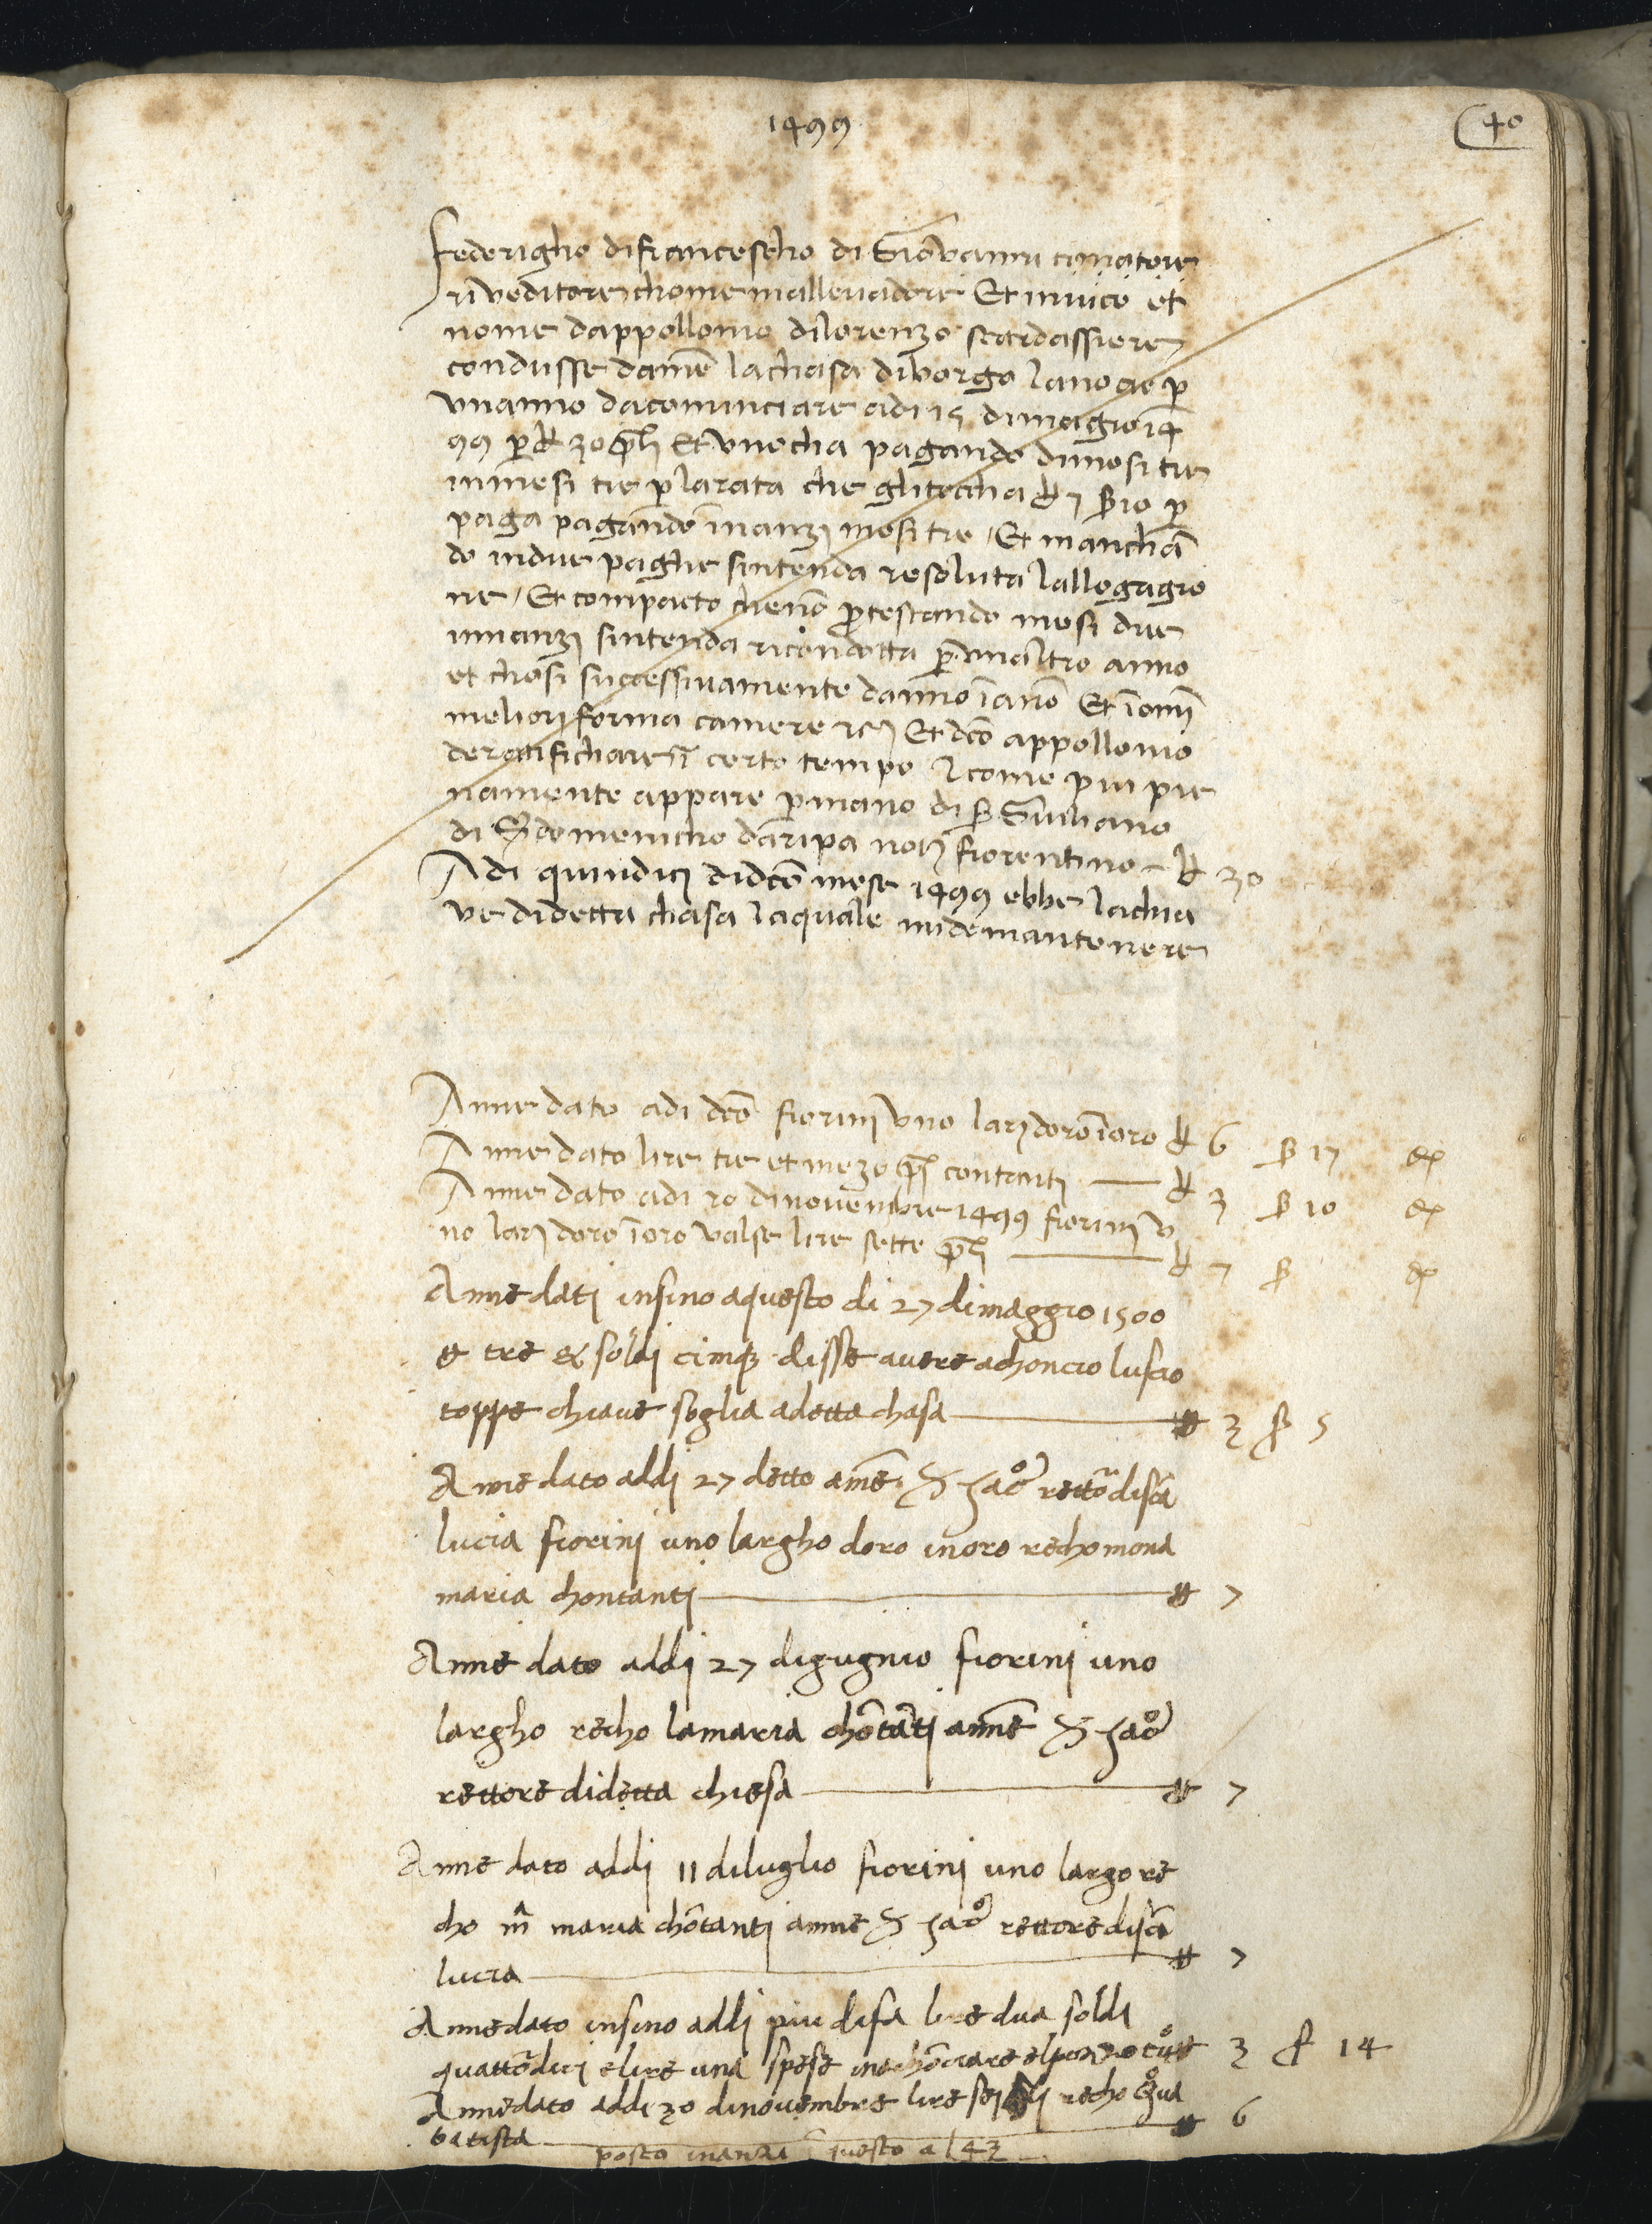 1499
40
Federigho di francescho di Giovanni cimatore
riveditore chome mallevadore Et in vice et
nome dappollonio di lorenzo scardassiere
condusse da me la chasa di borgo la noce p
un anno da cominciare adi 15 di maggio 14
99 p £ 30 pli Et un ocha pagando di mesi tre
in mesi tre p la rata che gli toccha £ 7 ß 10 p
paga pagando inanzi mesi tre / Et manchan
do in due paghe sintenda resoluta lallogagio
ne / Et con pacto che no protestando mesi due
innanzi sintenda ricondotta p un altro anno
et chosi successivamente danno i anno Et i omi
meliori forma camere etc Et dco appollonio
de ratifichare i certo tempo & come piu pie
namente appare p mano di s Giuliano
di s domenicho da ripa noto fiorentino - £ 30
Adi quindici di dco mese 1499 ebbe la chia
ve di detta chasa la quale mi de mantenere
Anne dato adi dco fiorini uno lar doro i oro £ 6 ß 17 d
Anne dato lire tre et mezo pli contanti — £ 3 ß 10 d
Anne dato adi 20 di novembre 1499 fiorini u
no lar doro i oro valse lire sette pli — £ 7 ß d
Anne dati insino a questo di 27 di maggio 1500
£ tre & soldi cinq disse avere a choncio luscio
toppe chiave soglia a detta chasa — £ 3 ß 5
Anne dato addi 27 detto a me s zao rettor di sca
lucia fiorini uno largho doro in oro recho mona
maria chontanti — £ 7
Anne dato addi 27 di gugnio fiorini uno
largho recho la maria chotati a me s zao
rettore di detta chiesa — £ 7
Anne dato addi 11 di luglio fiorini uno largo re
cho ma maria chotanti a me s zao rettore di sca
lucia — £ 7
Anne dato insino addi piu di fa lire dua soldi
quattordici e lire una spese in achociare el pozo £ 3 ß 14
Anne dato addi 30 di novembre lire sei recho
batista — £ 6
posto inanzi questo a l 43